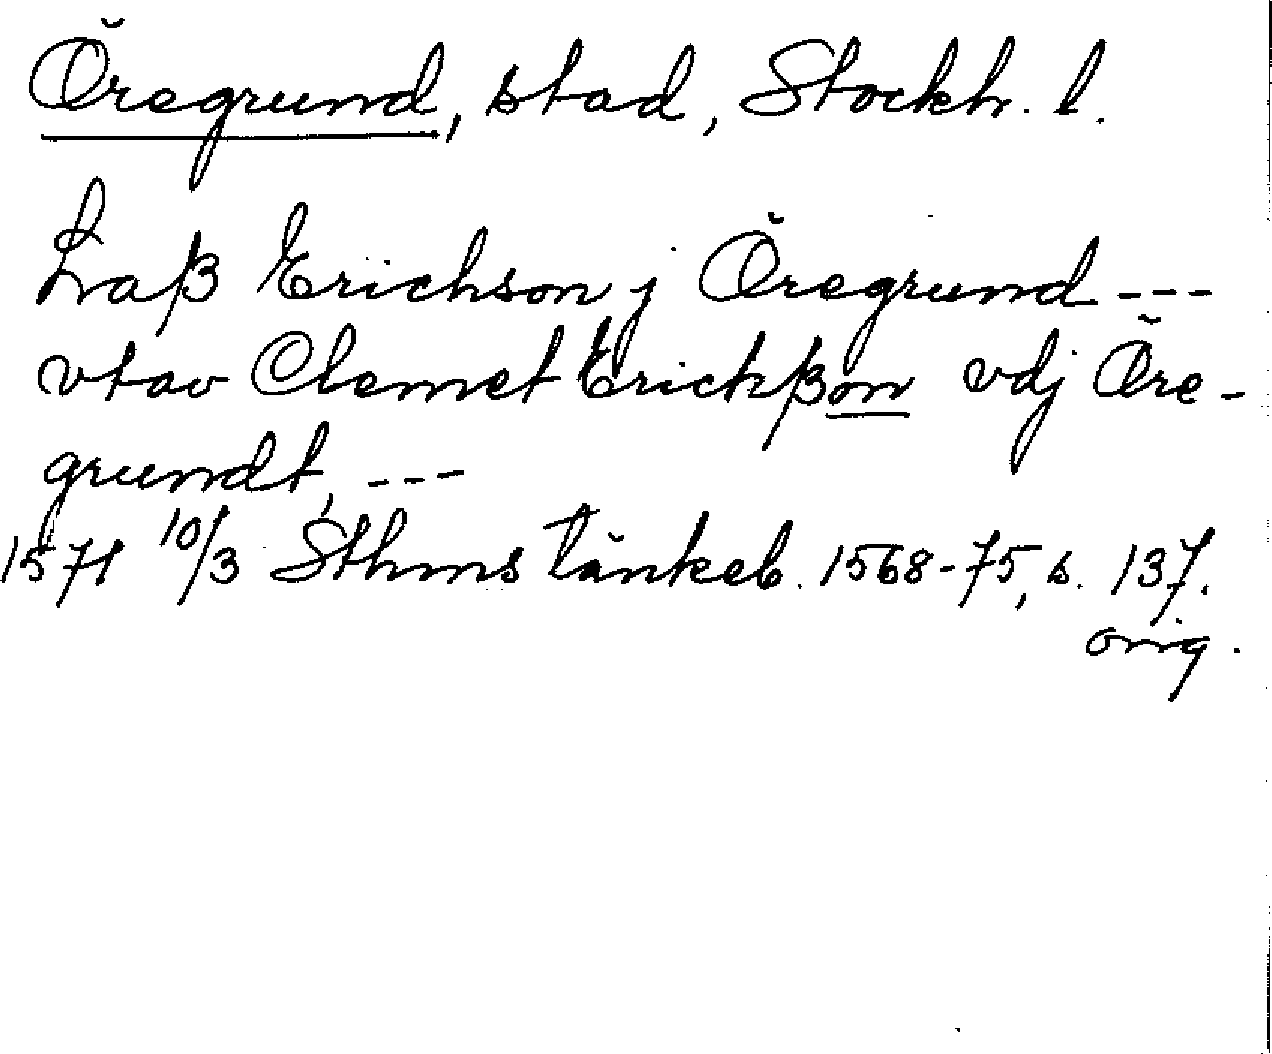 Öregrund, stad, Stockh. l.
Laß Erichson j Öregrund ---
vtav Clemet Erichßon vdj Öre-
grundt, ---
1571 10/3 Sthms tänkeb. 1568-75, s. 137.
orig.